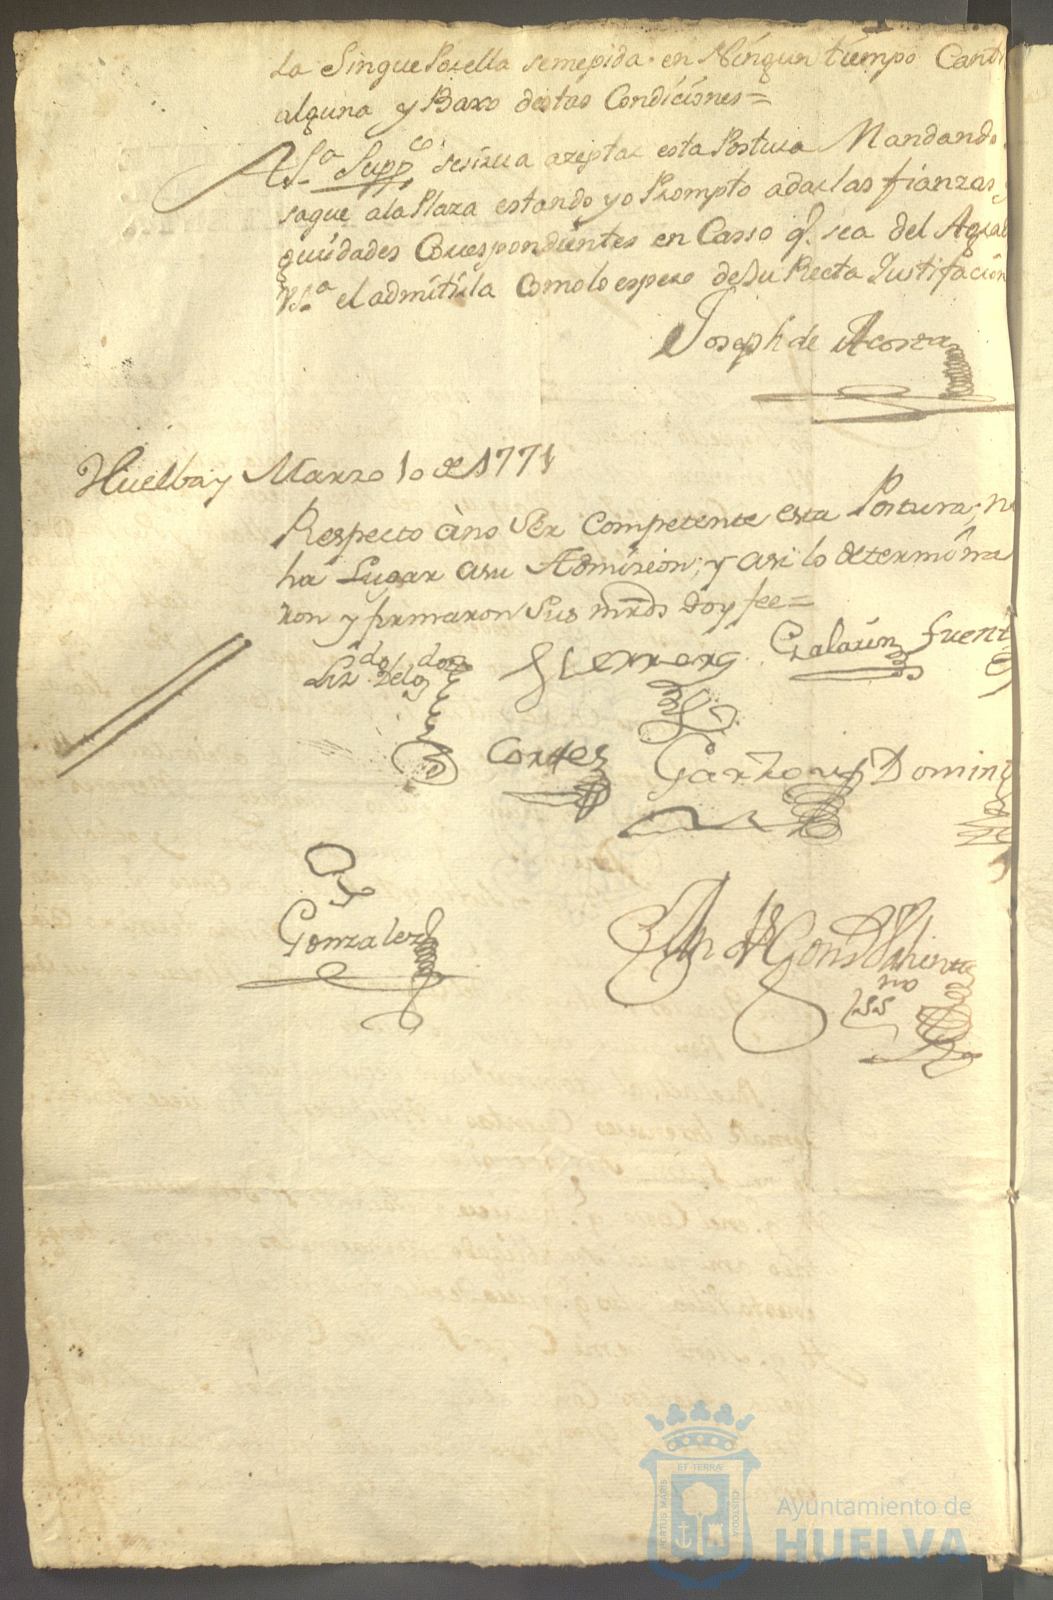 la Singue Porella semepida en Ningun tiempo Canti
alguna y Baxo destas Condiciones=
A V.S.ª Supp.co se sirva azeptar esta Postura Mandando
saque ala Plaza estando yo Prompto adar las fianzas y
guridades Correspondientes en Casso q.e sea del Agrad
V.S.ª el admitirla Como lo espero de su Recta Justifacion
Joseph de Acosta
Huelba y Marzo 10 de 1771
Respecto àno Ser Competente esta Postura, no
ha Lugar asu Admision, y asi lo determina
ron y firmaron Sus mrds doy fee=
Herrera Galavin fuent
Cortes Garzon Domin
Gonzalez
ET TERRÆ
PORTUS MARIS
CUSTODIA
Ayuntamiento de
HUELVA